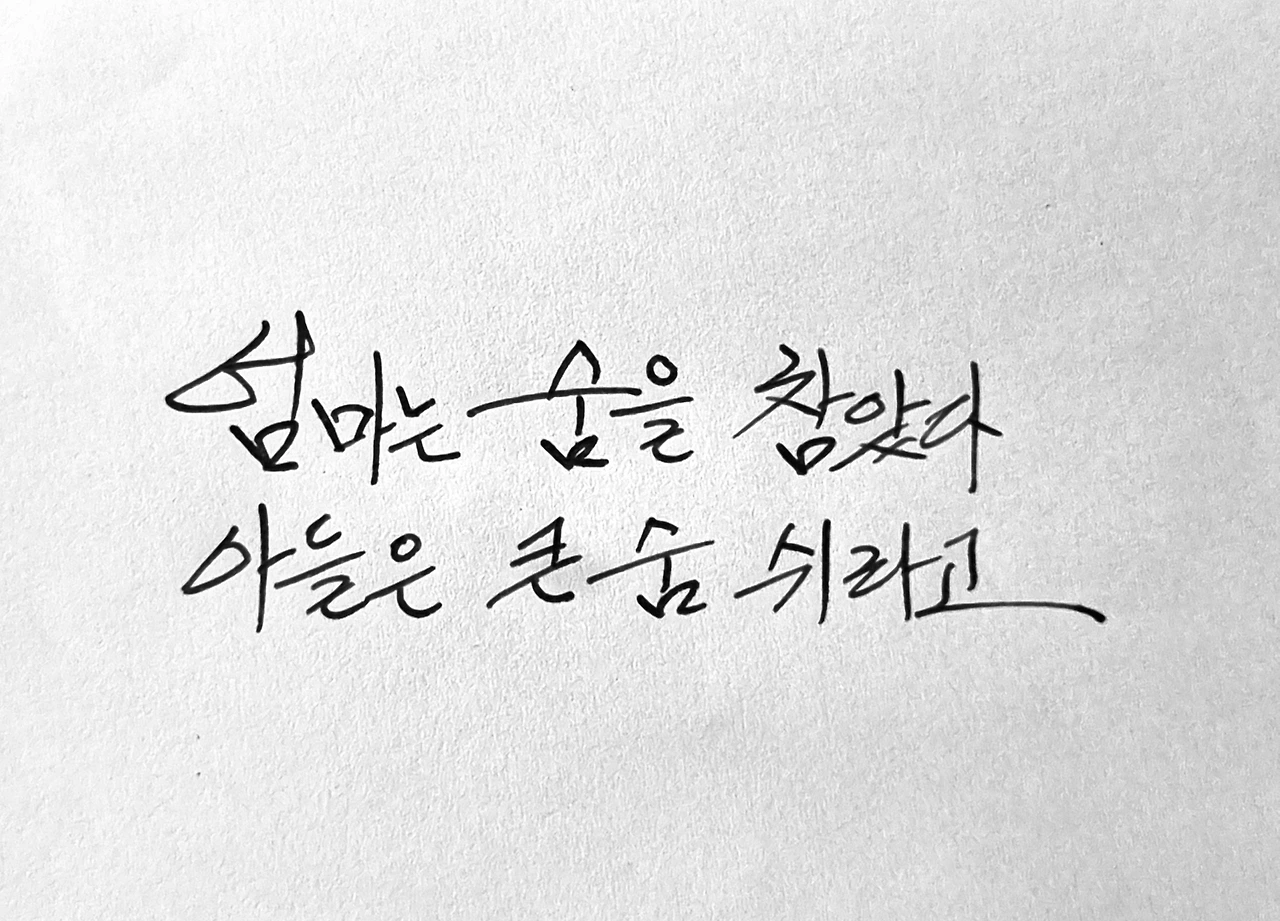 엄마는 숨을 참았다
아들은 큰 숨 쉬라고